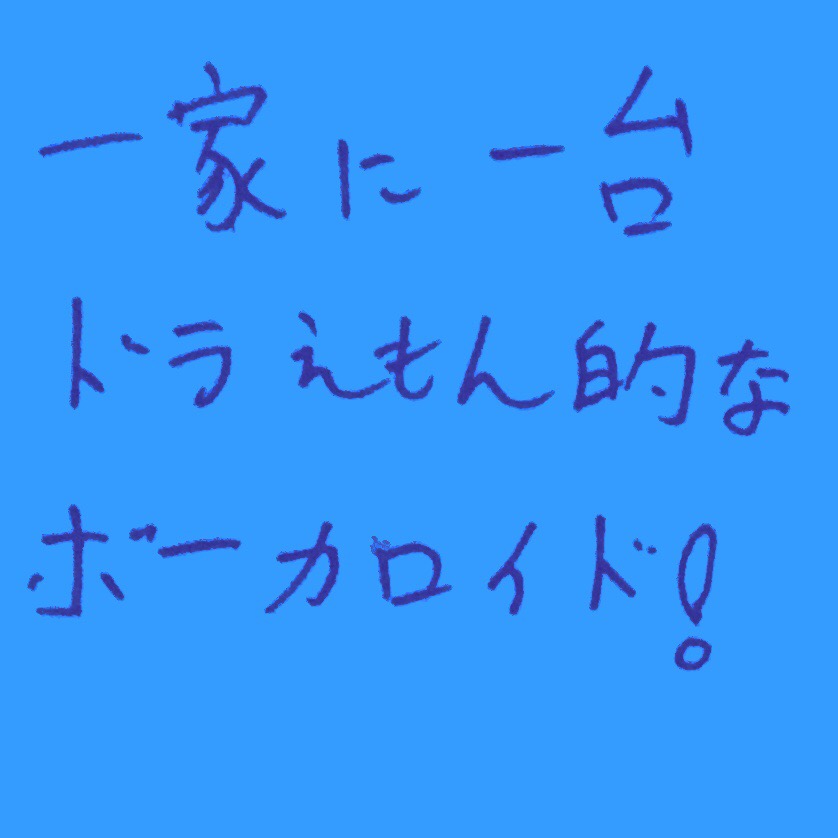 一家に一台
ドラえもん的な
ボーカロイド!